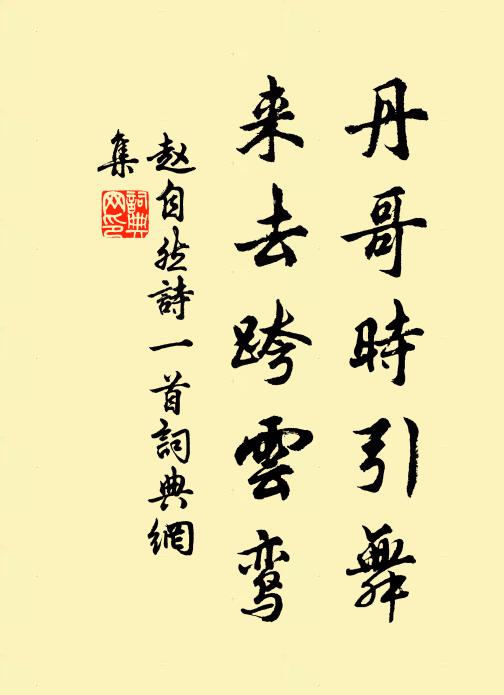 丹哥時引舞
来去跨雲鸾
赵自然詩一首詞典網
集
詞典网印